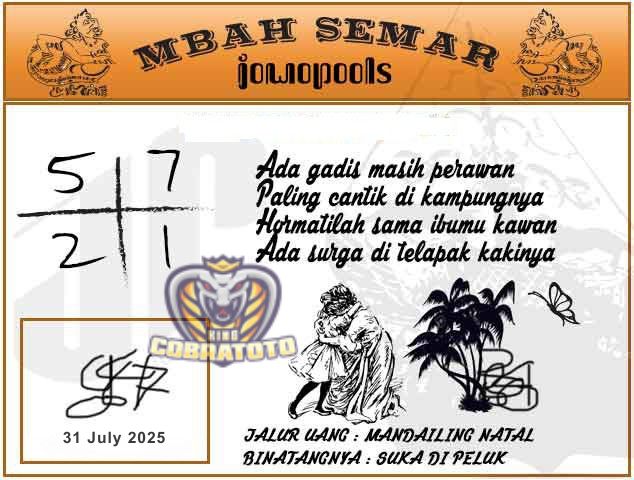 MBAH SEMAR
jowopools
5 7
2 1
Ada gadis masih perawan
Paling cantik di kampungnya
Hormatilah sama ibumu kawan
Ada surga di telapak kakinya
KING
COBRATOTO
31 July 2025
JALUR UANG : MANDAILING NATAL
BINATANGNYA : SUKA DI PELUK